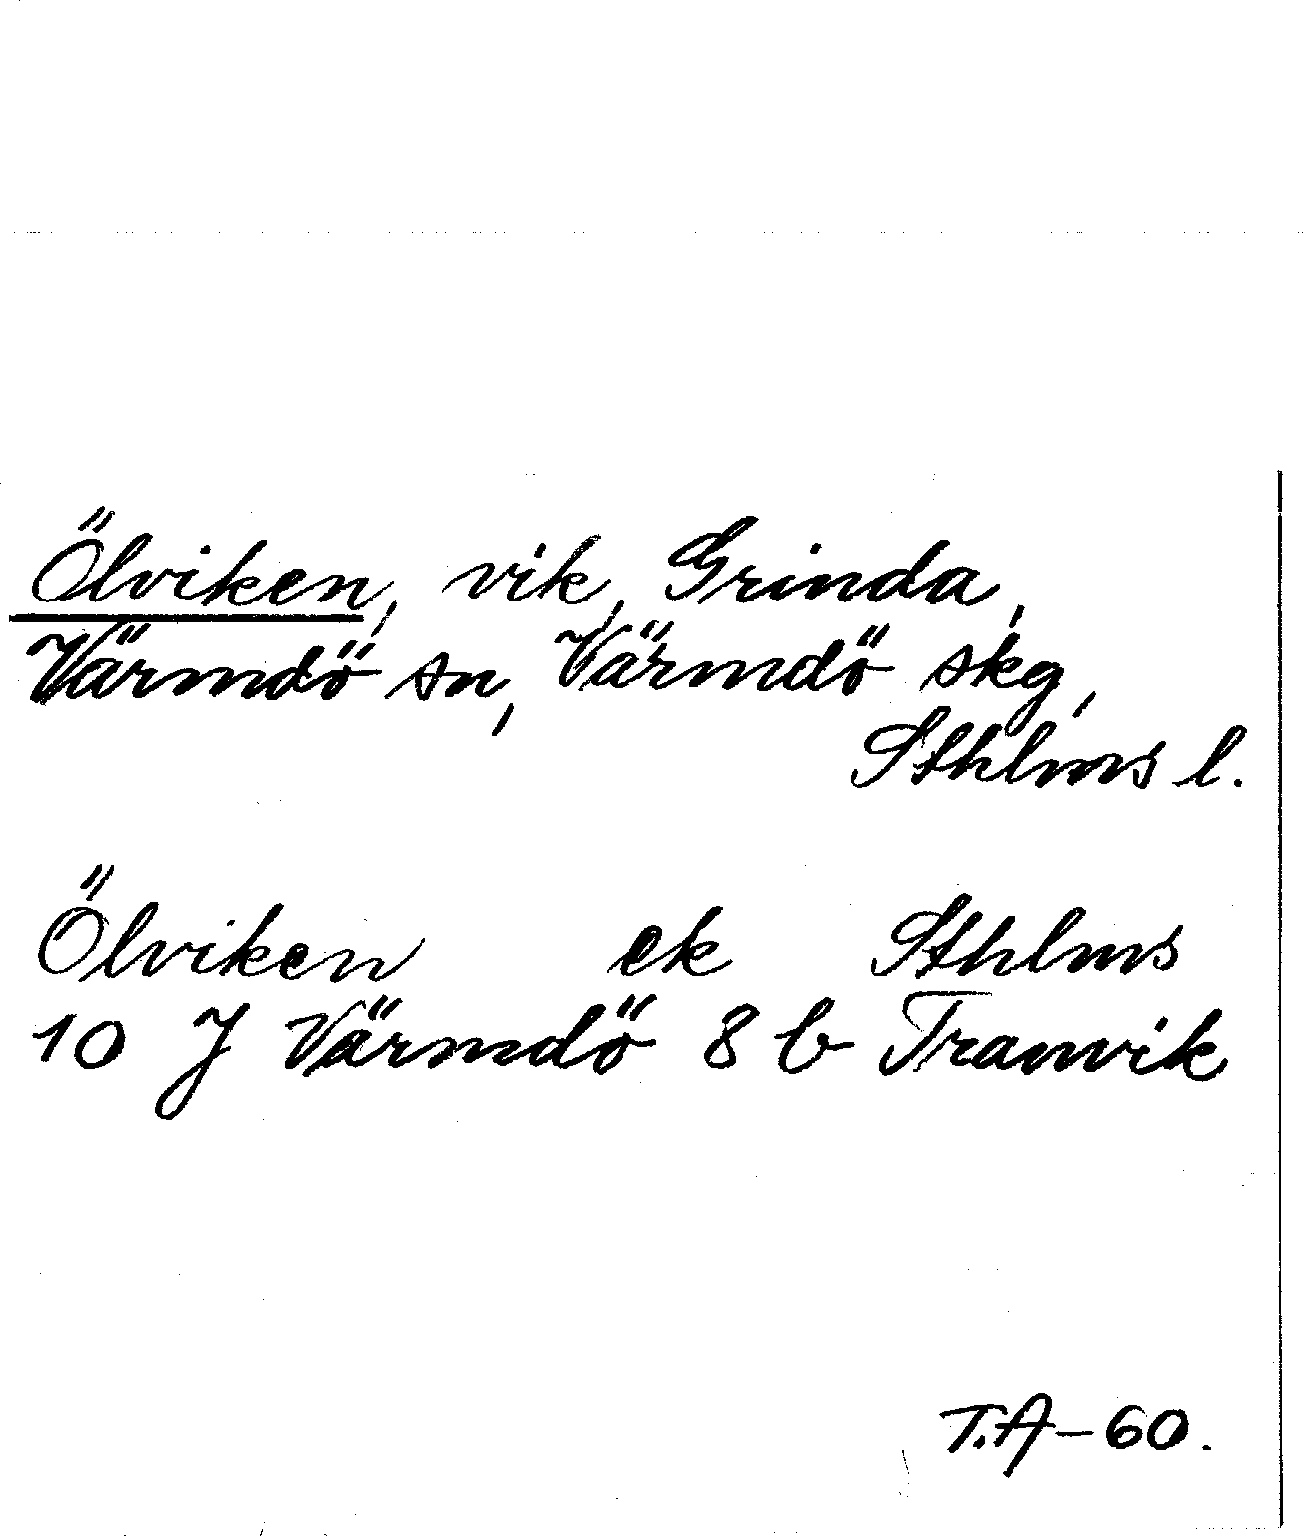 Ölviken, vik, Grinda,
Värmdö sn, Värmdö skg,
Sthlms l.
Ölviken ek Sthlms
10 J Värmdö 8 b Tranvik
T.A-60.